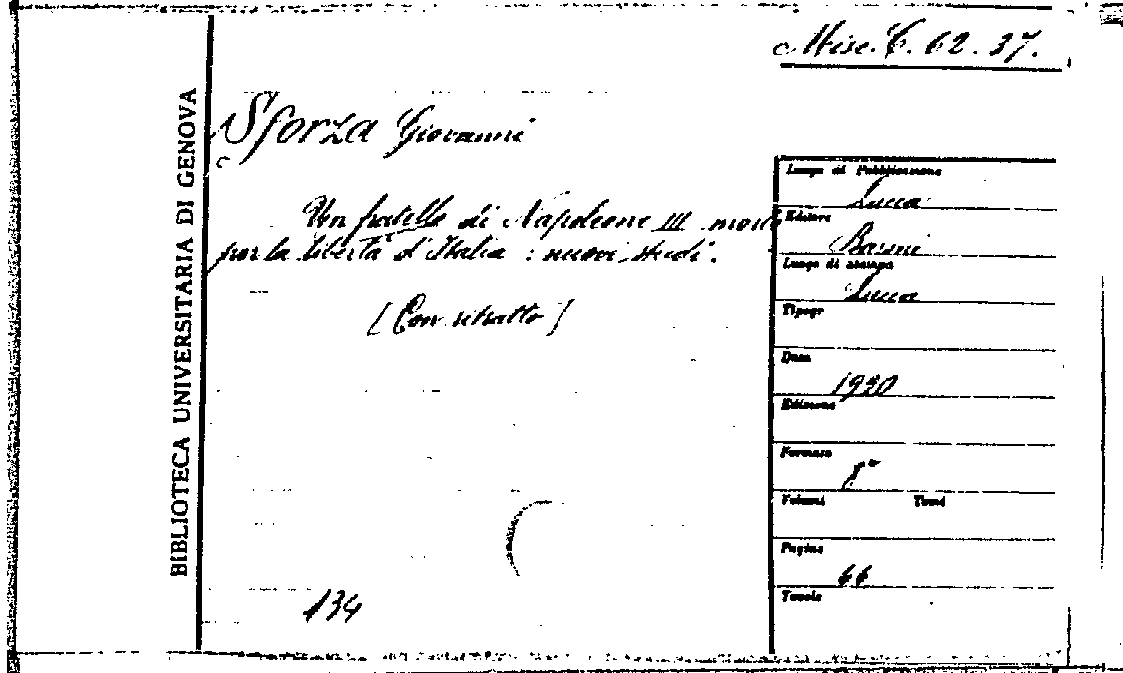 Misc. C. 62. 37.
BIBLIOTECA UNIVERSITARIA DI GENOVA
Sforza Giovanni
Un fratello di Napoleone III morto
per la libertà d'Italia : nuovi studi.
[Con ritratto]
134
Luogo di Pubblicazione
Lucca
Editore
Luogo di stampa
Lucca
Tipogr
Data
1930
Edizione
Formato
8°
Volumi Tomi
Pagine
Tavole